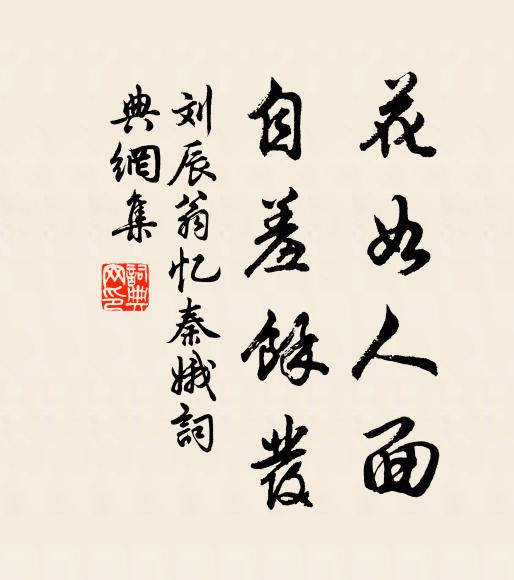 花如人面
自羞餘發
刘辰翁忆秦娥詞
典網集
詞典
网印